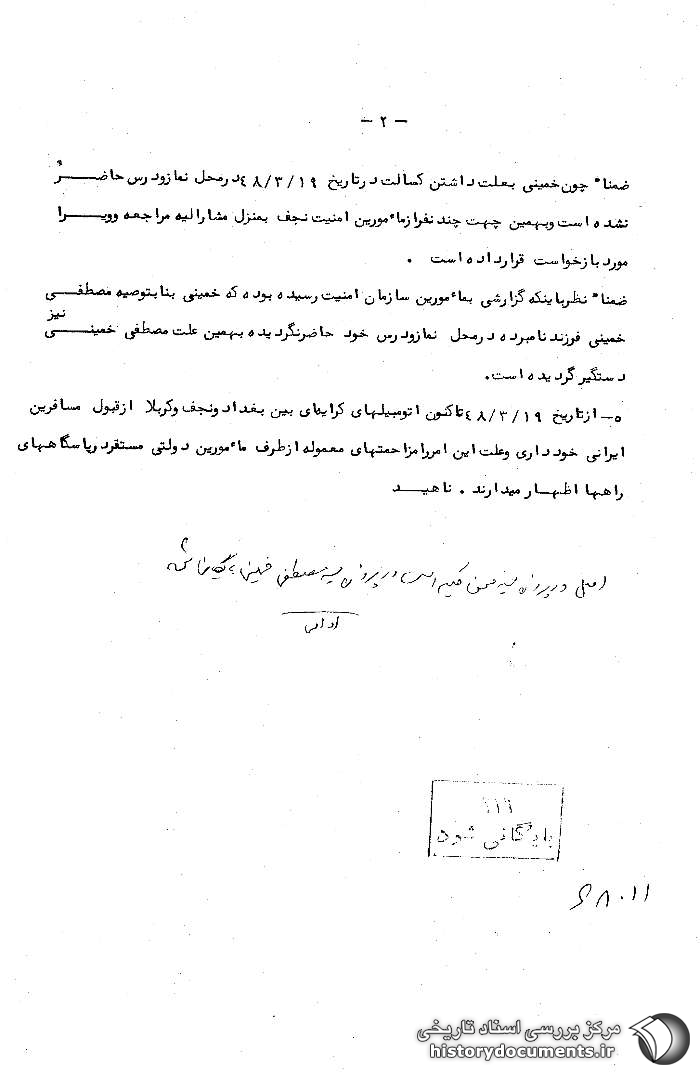 - ۲ -
ضمنا" چون خمینی بعلت داشتن کسالت در تاریخ ۴۸/۳/۱۹ در محل نماز و درس حاضر
نشده است و بهمین جهت چند نفر از مأمورین امنیت نجف بمنزل مشارالیه مراجعه و ویرا
مورد بازخواست قرار داده است .
ضمنا" نظر باینکه گزارشی بمأمورین سازمان امنیت رسیده بوده که خمینی بنا بتوصیه مصطفی
خمینی فرزند نامبرده در محل نماز و درس خود حاضر نگردیده بهمین علت مصطفی خمینی نیز
دستگیر گردیده است.
۵- از تاریخ ۴۸/۳/۱۹ تاکنون اتومبیلهای کرایه‌ای بین بغداد و نجف و کربلا از قبول مسافرین
ایرانی خودداری و علت این امر را مزاحمتهای معموله از طرف مأمورین دولتی مستقر در پاسگاههای
راهها اظهار میدارند . ناهید
اصل در پرونده محسن حکیم است در پرونده مصطفی خمینی بایگانی
۱۱۱
بایگانی شود
مرکز بررسی اسناد تاریخی
historydocuments.ir